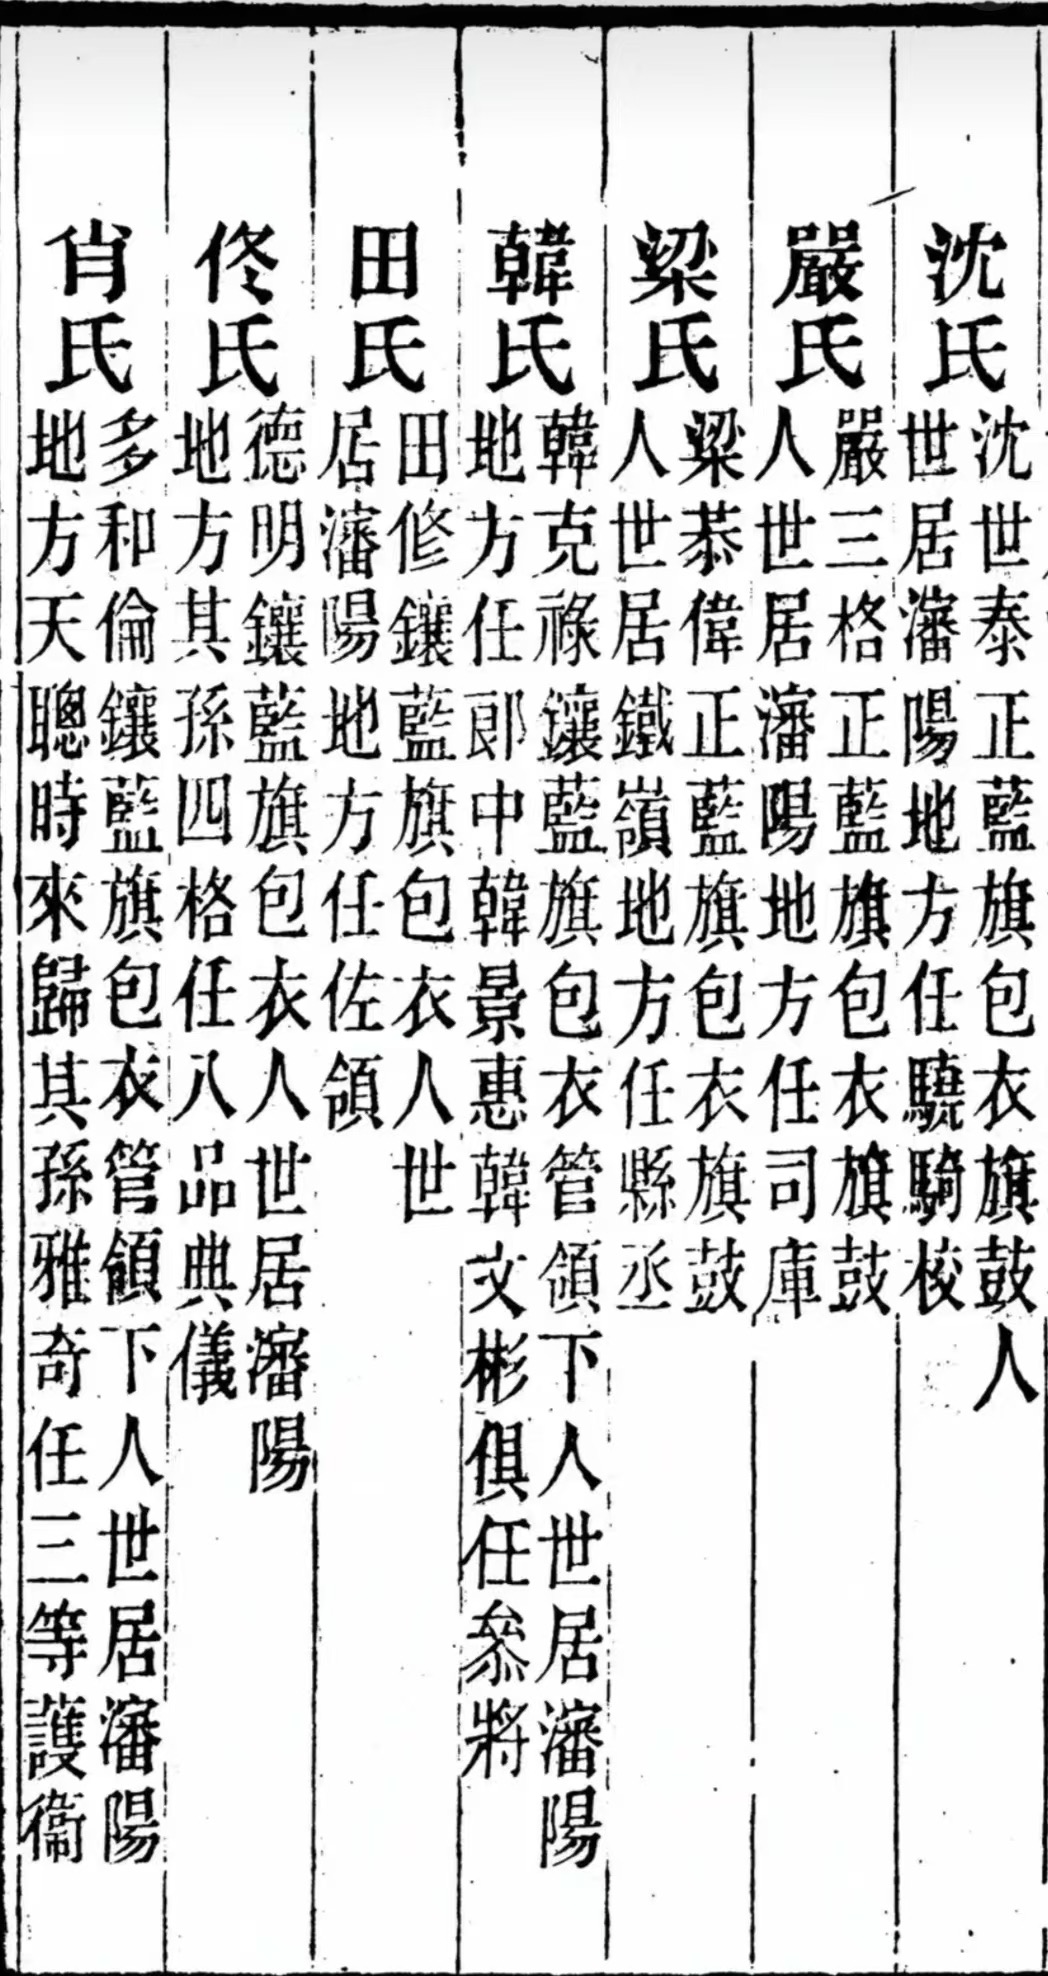 沈氏
沈世泰正藍旗包衣旗鼓人
世居瀋陽地方任驍騎校
嚴氏
嚴三格正藍旗包衣旗鼓
人世居瀋陽地方任司庫
梁氏
梁恭偉正藍旗包衣旗鼓
人世居鐵嶺地方任縣丞
韓氏
韓克祿鑲藍旗包衣管領下人世居瀋陽
地方任郎中韓景惠韓文彬俱任叅將
田氏
田修鑲藍旗包衣人世
居瀋陽地方任佐領
佟氏
德明鑲藍旗包衣人世居瀋陽
地方其孫四格任八品典儀
肖氏
多和倫鑲藍旗包衣管領下人世居瀋陽
地方天聰時來歸其孫雅奇任三等護衞